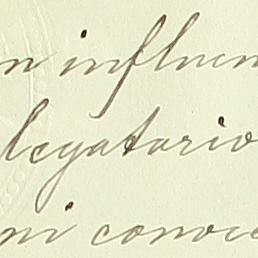 n influen
legatario
ni conove